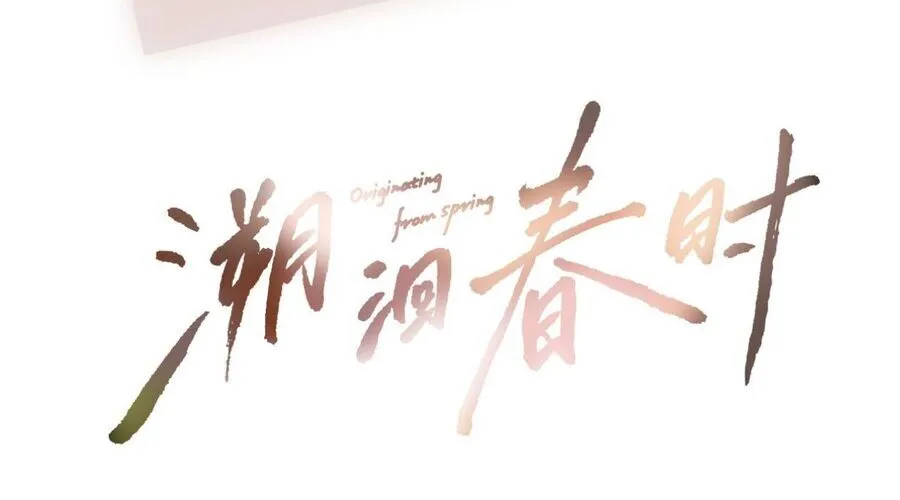 溯洄春时
Originating
from spring